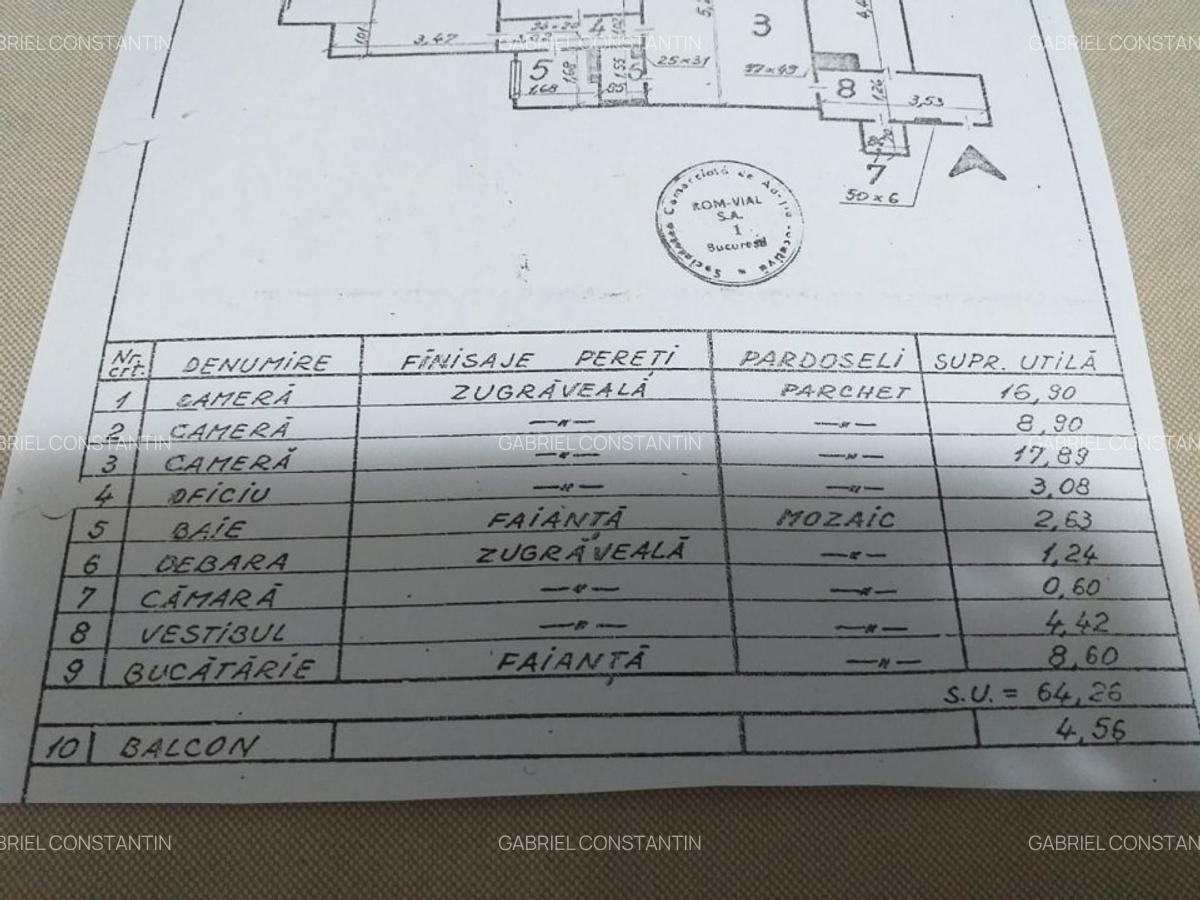 1,01
3,47
5
1,68
1,68
1,55
85
25×31
3
77×49
8
1,26
3,53
7
50×6
Societatea Comercială de
ROM-VIAL
S.A.
1
București
Nr. crt. DENUMIRE FINISAJE PEREȚI PARDOSELI SUPR. UTILĂ
1 CAMERĂ ZUGRĂVEALĂ PARCHET 16,90
2 CAMERĂ —〃— —〃— 8,90
3 CAMERĂ —〃— —〃— 17,89
4 OFICIU —〃— —〃— 3,08
5 BAIE FAIANȚĂ MOZAIC 2,63
6 DEBARA ZUGRĂVEALĂ —〃— 1,24
7 CĂMARĂ —〃— —〃— 0,60
8 VESTIBUL —〃— —〃— 4,42
9 BUCĂTĂRIE FAIANȚĂ —〃— 8,60
S.U. = 64,26
10 BALCON 4,56
GABRIEL CONSTANTIN
GABRIEL CONSTANTIN
GABRIEL CONSTANTIN
GABRIEL CONSTANTIN
GABRIEL CONSTANTIN
GABRIEL CONSTANTIN
GABRIEL CONSTANTIN
GABRIEL CONSTANTIN
GABRIEL CONSTANTIN